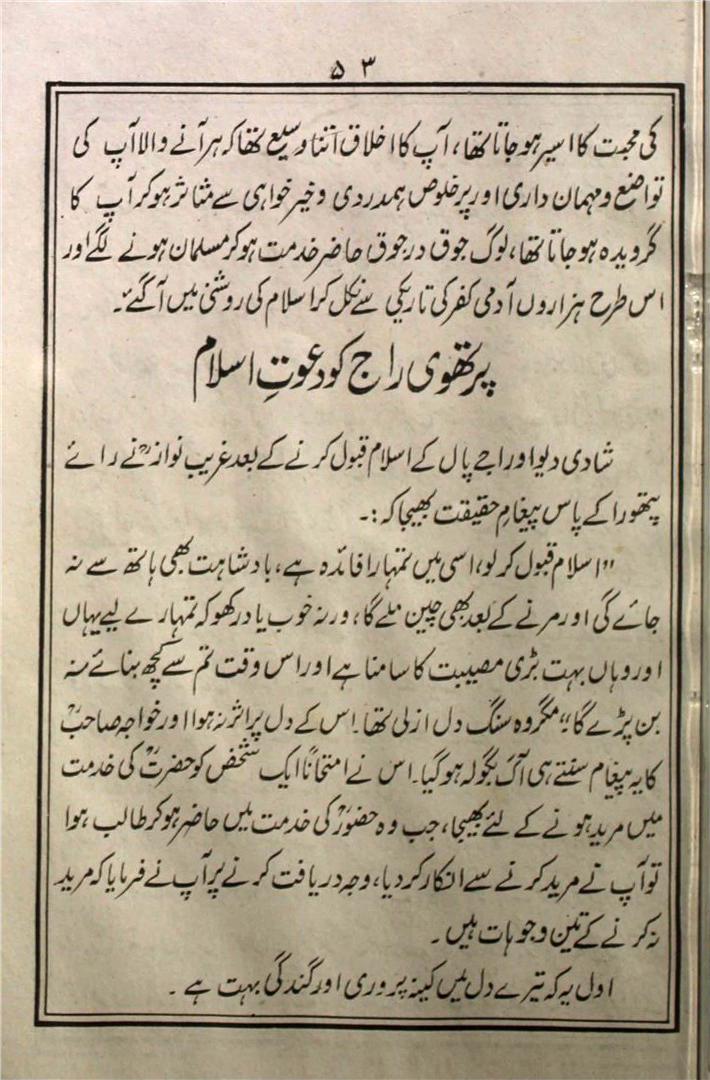 ۵۳
کی محبت کا اسیر ہو جاتا تھا، آپ کا اخلاق اتنا وسیع تھا کہ ہر آنے والا آپ کی
تواضع و مہمان داری اور پر خلوص ہمدردی و خیر خواہی سے متاثر ہو کر آپ کا
گرویدہ ہو جاتا تھا، لوگ جوق در جوق حاضر خدمت ہو کر مسلمان ہونے لگے اور
اس طرح ہزاروں آدمی کفر کی تاریکی سے نکل کر اسلام کی روشنی میں آ گئے۔
پرتھوی راج کو دعوتِ اسلام
شادی دیو اور اجے پال کے اسلام قبول کرنے کے بعد غریب نوازؒ نے رائے
پتھورا کے پاس پیغامِ حقیقت بھیجا کہ :۔
"اسلام قبول کر لو، اسی میں تمہارا فائدہ ہے، بادشاہت بھی ہاتھ سے نہ
جائے گی اور مرنے کے بعد بھی چین ملے گا، ورنہ خوب یاد رکھو کہ تمہارے لیے یہاں
اور وہاں بہت بڑی مصیبت کا سامنا ہے اور اس وقت تم سے کچھ بنائے نہ
بن پڑے گا" مگر وہ سنگ دل ازلی تھا۔ اس کے دل پر اثر نہ ہوا اور خواجہ صاحبؒ
کا یہ پیغام سنتے ہی آگ بگولہ ہو گیا۔ اس نے امتحاناً ایک شخص کو حضرتؒ کی خدمت
میں مرید ہونے کے لئے بھیجا، جب وہ حضورؒ کی خدمت میں حاضر ہو کر طالب ہوا
تو آپ نے مرید کرنے سے انکار کر دیا، وجہ دریافت کرنے پر آپ نے فرمایا کہ مرید
نہ کرنے کے تین وجوہات ہیں۔
اول یہ کہ تیرے دل میں کینہ پروری اور گندگی بہت ہے۔